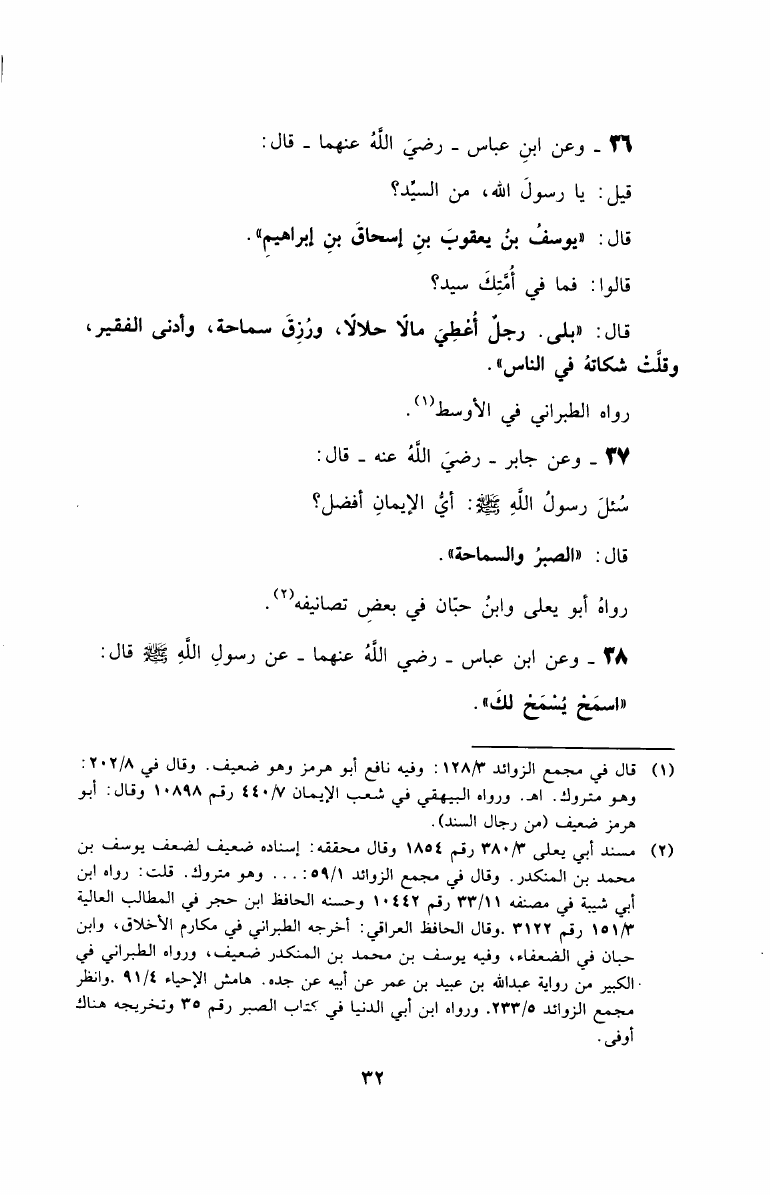 ٣٦ ـ وعن ابنِ عباس ـ رضيَ اللَّهُ عنهما ـ قال:
قيل: يا رسولَ الله، من السيِّد؟
قال: «يوسفُ بنُ يعقوبَ بنِ إسحاقَ بنِ إبراهيمِ».
قالوا: فما في أُمَّتِكَ سيد؟
قال: «بلى. رجلٌ أُعْطِيَ مالًا حلالًا، ورُزِقَ سماحة، وأدنى الفقير،
وقلَّتْ شكاتهُ في الناس».
رواه الطبراني في الأوسط(١).
٣٧ ـ وعن جابر ـ رضيَ اللَّهُ عنه ـ قال:
سُئلَ رسولُ اللَّهِ ﷺ: أيُّ الإيمانِ أفضل؟
قال: «الصبرُ والسماحة».
رواهُ أبو يعلى وابنُ حبّان في بعضِ تصانيفه(٢).
٣٨ ـ وعن ابن عباس ـ رضي اللَّهُ عنهما ـ عن رسولِ اللَّهِ ﷺ قال:
«اسمَحْ يُسْمَحْ لكَ».
(١) قال في مجمع الزوائد ١٢٨/٣: وفيه نافع أبو هرمز وهو ضعيف. وقال في ٢٠٢/٨:
وهو متروك. اهـ. ورواه البيهقي في شعب الإيمان ٤٤٠/٧ رقم ١٠٨٩٨ وقال: أبو
هرمز ضعيف (من رجال السند).
(٢) مسند أبي يعلى ٣٨٠/٣ رقم ١٨٥٤ وقال محققه: إسناده ضعيف لضعف يوسف بن
محمد بن المنكدر. وقال في مجمع الزوائد ٥٩/١: ... وهو متروك. قلت: رواه ابن
أبي شيبة في مصنفه ٣٣/١١ رقم ١٠٤٤٢ وحسنه الحافظ ابن حجر في المطالب العالية
١٥١/٣ رقم ٣١٢٢. وقال الحافظ العراقي: أخرجه الطبراني في مكارم الأخلاق، وابن
حبان في الضعفاء، وفيه يوسف بن محمد بن المنكدر ضعيف، ورواه الطبراني في
الكبير من رواية عبدالله بن عبيد بن عمر عن أبيه عن جده. هامش الإحياء ٩١/٤. وانظر
مجمع الزوائد ٢٣٣/٥. ورواه ابن أبي الدنيا في كتاب الصبر رقم ٣٥ وتخريجه هناك
أوفى.
٣٢